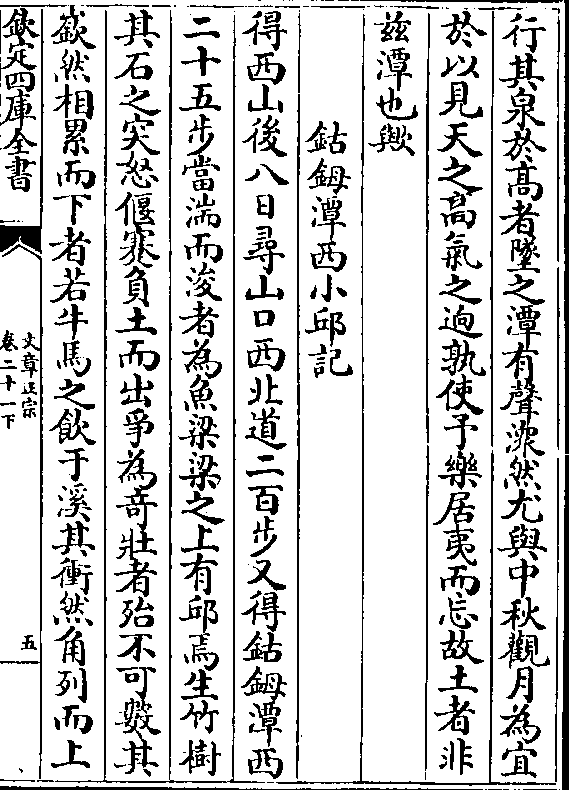 行其泉於髙者墜之潭有聲潀然尤與中秋觀月為宜
於以見天之髙氣之逈孰使予樂居夷而忘故土者非
兹潭也歟
鈷鉧潭西小邱記
得西山後八日尋山口西北道二百步又得鈷鉧潭西
二十五步當湍而浚者為魚梁梁之上有邱焉生竹樹
其石之突怒偃蹇負土而出爭為竒壯者殆不可數其
嶔然相累而下者若牛馬之飲于溪其衝然角列而上
欽定四庫全書
文章正宗
卷二十一下
五